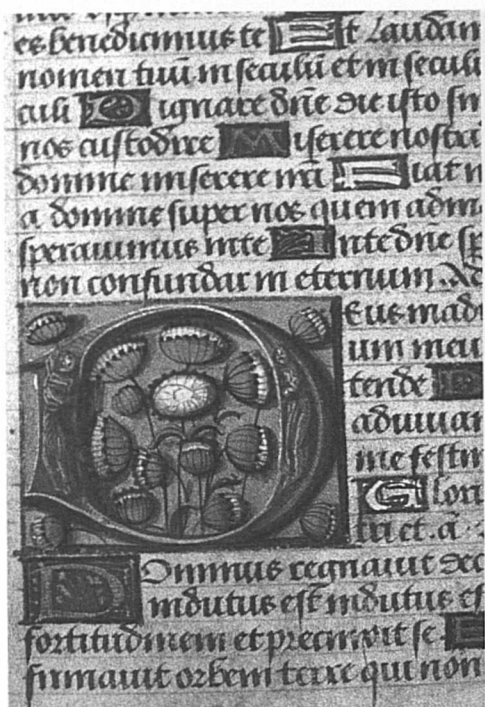 es benedicimus te Et laudam
nomen tuū in seculū et in seculū
culi Dignare dn̄e die isto sin
nos custodire Miserere nostri
domine miserere nr̄i Fiat m
a domine super nos quem adm
speravimus in te In te dn̄e sp
non confundar in eternum. Ad
Deus in adiu
um meu
tende D
adiuuan
me festin
Glori
tri et. a
Dominus regnauit dec
indutus est indutus es
fortitudinem et precinxit se. E
firmauit orbem terre qui non